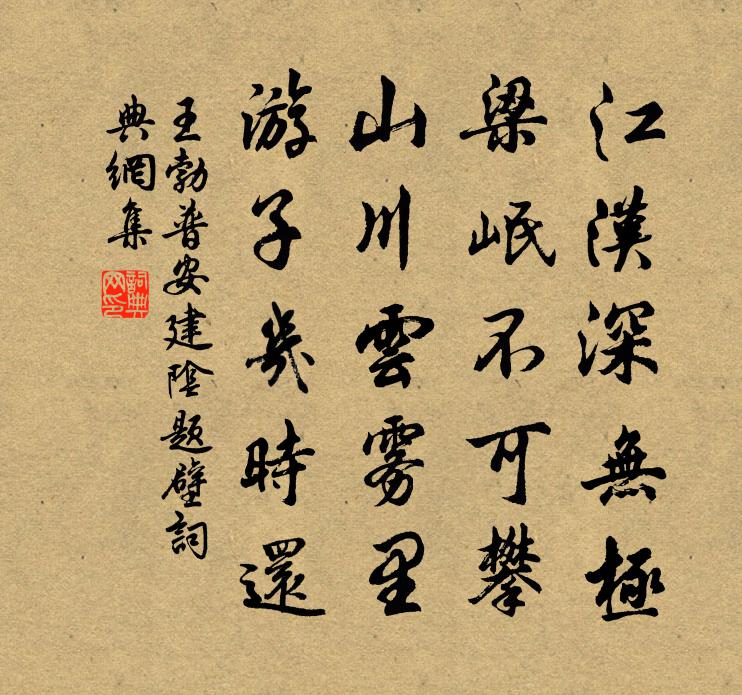 江漢深無極
梁岷不可攀
山川雲雾里
游子幾時還
王勃普安建陰題壁詞
典網集
詞典网印